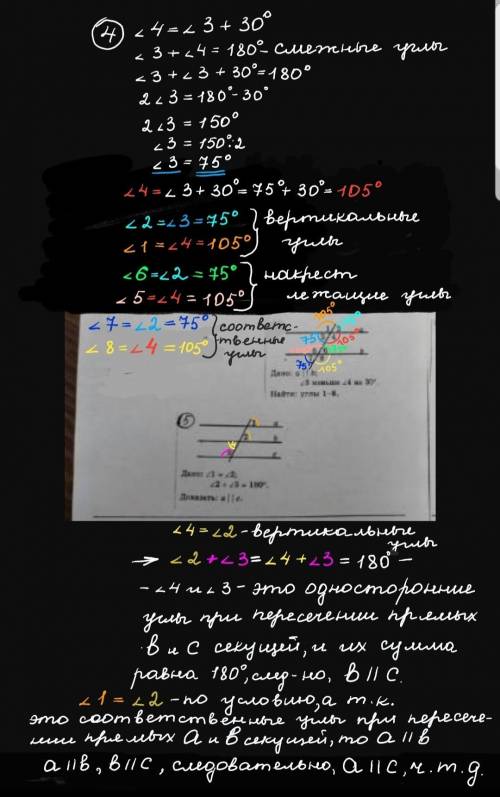 ④ ∠4=∠3+30°
∠3+∠4=180°-смежные углы
∠3+∠3+30°=180°
2∠3=180°-30°
2∠3=150°
∠3=150°:2
∠3=75°
∠4=∠3+30°=75°+30°=105°
∠2=∠3=75°
∠1=∠4=105°
вертикальные
углы
∠6=∠2=75°
∠5=∠4=105°
накрест
лежащие углы
∠7=∠2=75°
∠8=∠4=105°
соответс-
твенные
углы
105°
75°
105°
75°
105°
Дано: a || b;
∠3 меньше ∠4 на 30°.
Найти: углы 1–8.
⑤
1 a
2 b
c
Дано: ∠1 = ∠2;
∠2 + ∠3 = 180°.
Доказать: a || c.
∠4=∠2-вертикальные
углы
→ ∠2+∠3=∠4+∠3=180°-
-∠4 и ∠3-это односторонние
углы при пересечении прямых
в и с секущей, и их сумма
равна 180°, след-но, в || с.
∠1=∠2-по условию, а т.к.
это соответственные углы при пересече-
нии прямых а и в секущей, то а || в
а || в, в || с, следовательно, а || с, ч.т.д.